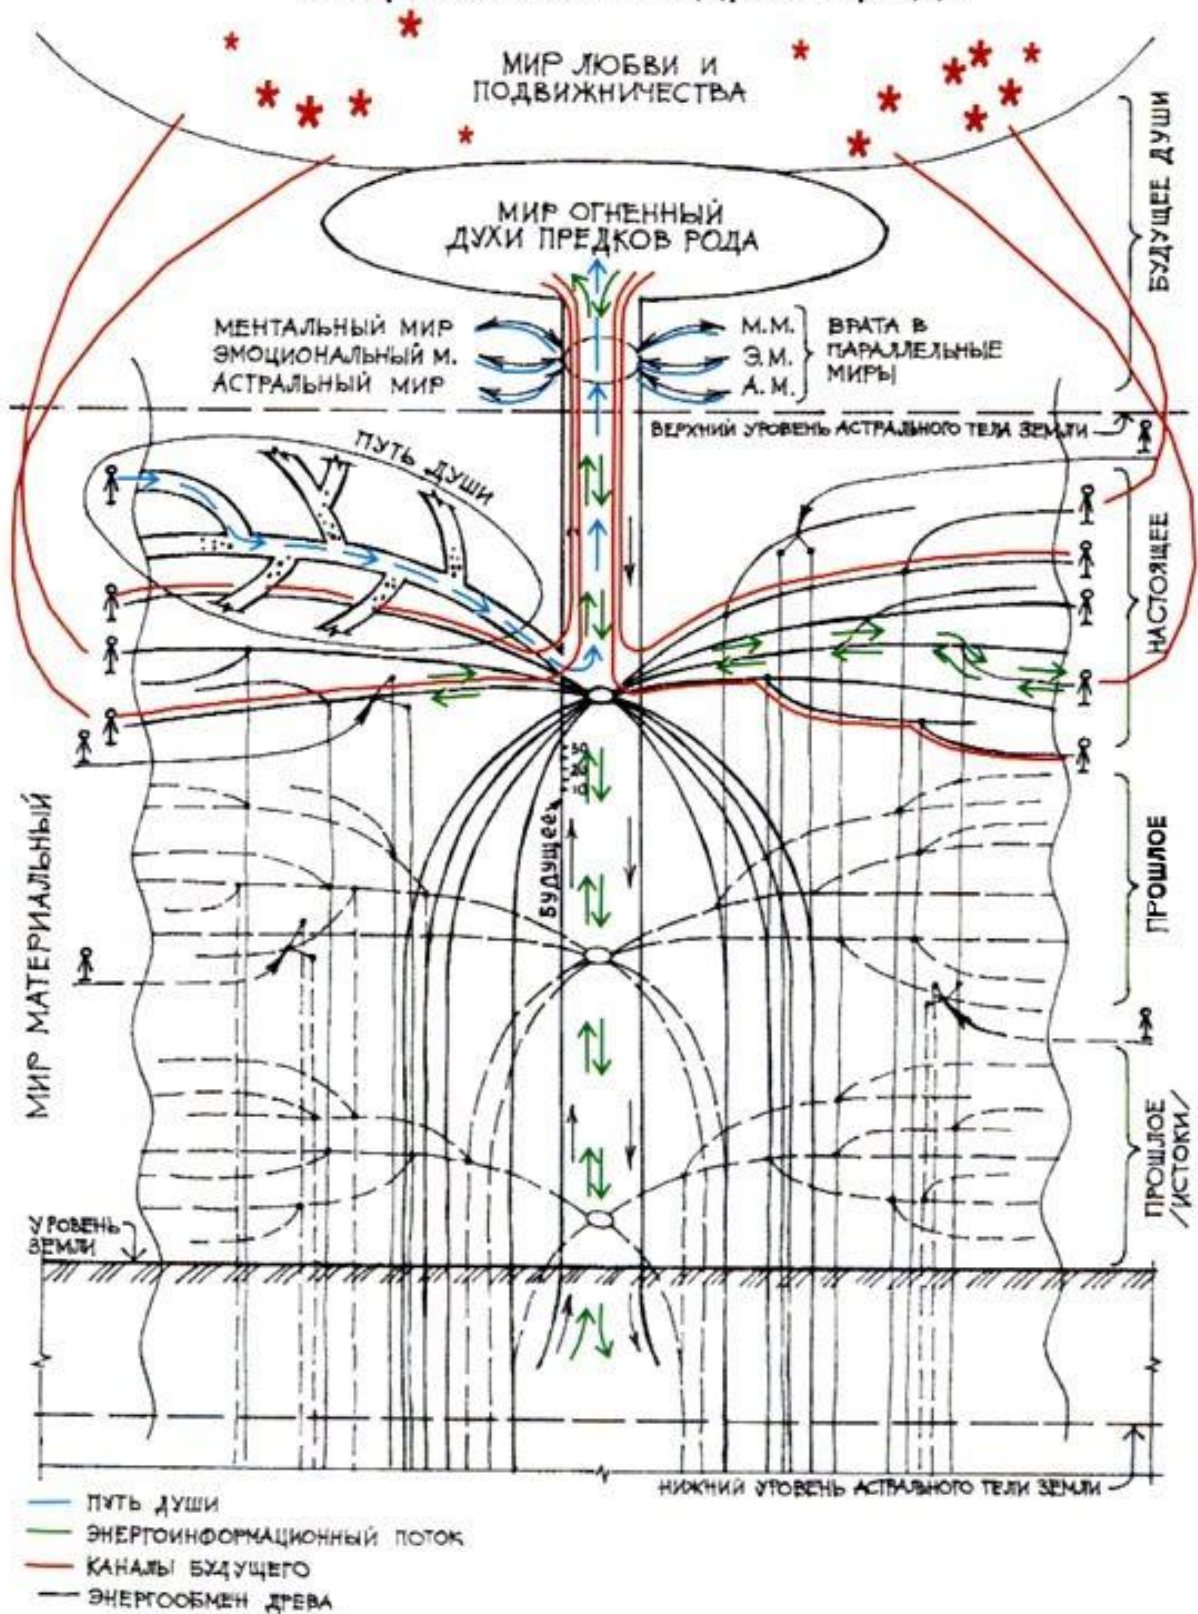 МИР ЛЮБВИ И
ПОДВИЖНИЧЕСТВА
МИР ОГНЕННЫЙ
ДУХИ ПРЕДКОВ РОДА
БУДУЩЕЕ ДУШИ
МЕНТАЛЬНЫЙ МИР
ЭМОЦИОНАЛЬНЫЙ М.
АСТРАЛЬНЫЙ МИР
М.М.
Э.М.
А.М.
ВРАТА В
ПАРАЛЛЕЛЬНЫЕ
МИРЫ
ВЕРХНИЙ УРОВЕНЬ АСТРАЛЬНОГО ТЕЛА ЗЕМЛИ
ПУТЬ ДУШИ
НАСТОЯЩЕЕ
30
20
10
БУДУЩЕЕ
МИР МАТЕРИАЛЬНЫЙ
ПРОШЛОЕ
ПРОШЛОЕ
/ИСТОКИ/
УРОВЕНЬ
ЗЕМЛИ
НИЖНИЙ УРОВЕНЬ АСТРАЛЬНОГО ТЕЛИ ЗЕМЛИ
ПУТЬ ДУШИ
ЭНЕРГОИНФОРМАЦИОННЫЙ ПОТОК
КАНАЛЫ БУДУЩЕГО
ЭНЕРГООБМЕН ДРЕВА